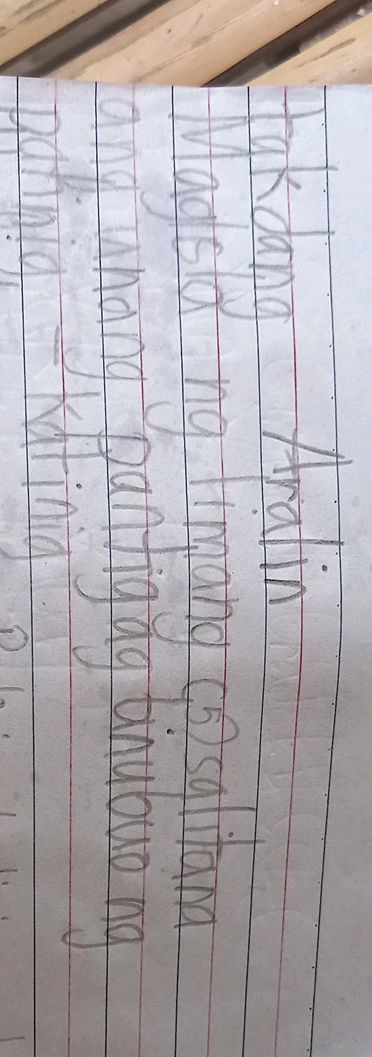 Takdang Aralin
Maglsta ng limang (5) salitana
ang unang pantig ay binubuo ng
patinig - Katinig